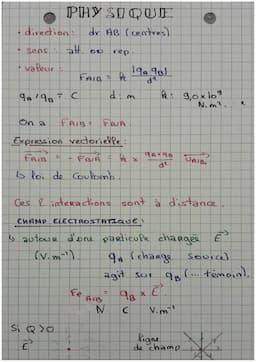 PHYSIQUE
• direction : dr AB (centres)
• sens : att ou rep.
• valeur :
FA/B = k |qA qB| / d²
qA/qB = C d : m k : 9,0 x 10⁹ N.m².
On a FA/B = FB/A
Expression vectorielle :
FA/B = - FB/A = k x qA x qB / d² UA/B
↳ loi de Coulomb.
Ces 2 interactions sont à distance.
CHAMP ELECTROSTATIQUE :
↳ autour d'une particule chargée E
(V.m⁻¹). qA (charge source)
agit sur qB (... témoin).
Fe A/B = qB x E
N C V.m⁻¹
Si Q>0
E
ligne de champ